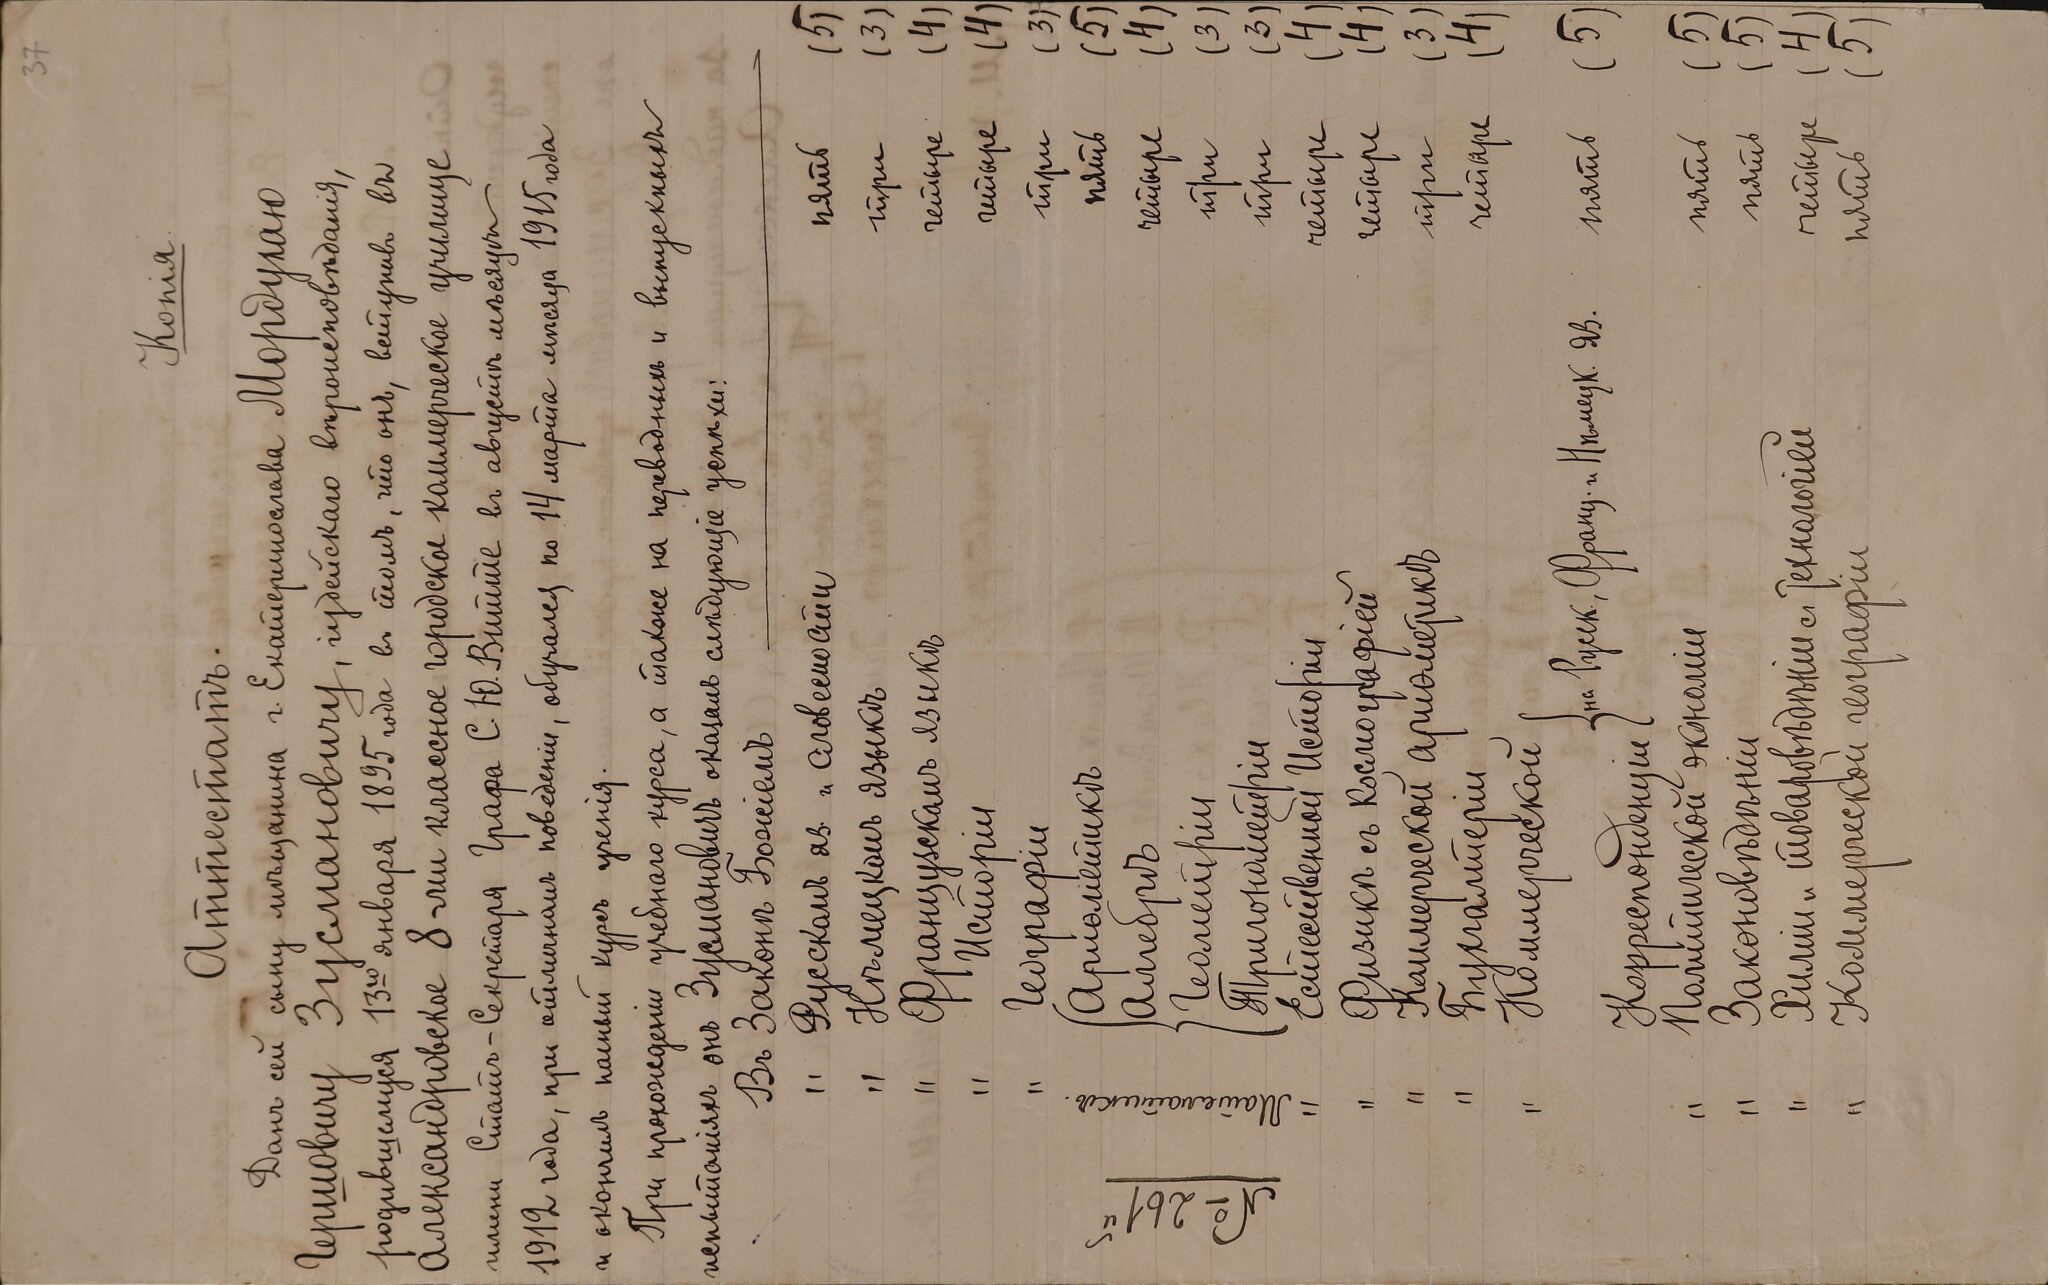 37
Копія.
Аттестатъ.
Данъ сей сыну мѣщанина г. Екатеринослава Мордухаю
Гершовичу Зусмановичу, іудейскаго вѣроисповѣданія,
родившемуся 13го января 1895 года въ томъ, что онъ, вступивъ въ
Александровское 8-ми классное городское коммерческое училище
имени Статсъ-Секретаря Графа С. Ю. Витте въ августѣ мѣсяцѣ
1912 года, при отличномъ поведеніи, обучался по 14 марта мѣсяца 1915 года
и окончилъ полный курсъ ученія.
При прохожденіи учебнаго курса, а также на переводныхъ и выпускныхъ
испытаніяхъ онъ Зусмановичъ оказалъ слѣдующіе успѣхи:
Въ Законѣ Божіемъ
" Русскомъ яз. и словесности пять (5)
" Нѣмецкомъ языкѣ три (3)
" Французскомъ языкѣ четыре (4)
" Исторіи четыре (4)
" Географіи три (3)
Математикѣ.
Ариѳметикѣ пять (5)
Алгебрѣ четыре (4)
Геометріи три (3)
Тригонометріи три (3)
" Естественной Исторіи четыре (4)
" Физикѣ съ Космографіей четыре (4)
" Коммерческой ариѳметикѣ три (3)
" Бухгалтеріи четыре (4)
" Коммерческой
Корреспонденціи } на Русск., Франц. и Нѣмецк. яз. пять (5)
" Политической экономіи пять (5)
" Законовѣдѣніи пять (5)
" Химіи и товаровѣдѣніи съ Технологіей четыре (4)
" Коммерческой географіи пять (5)